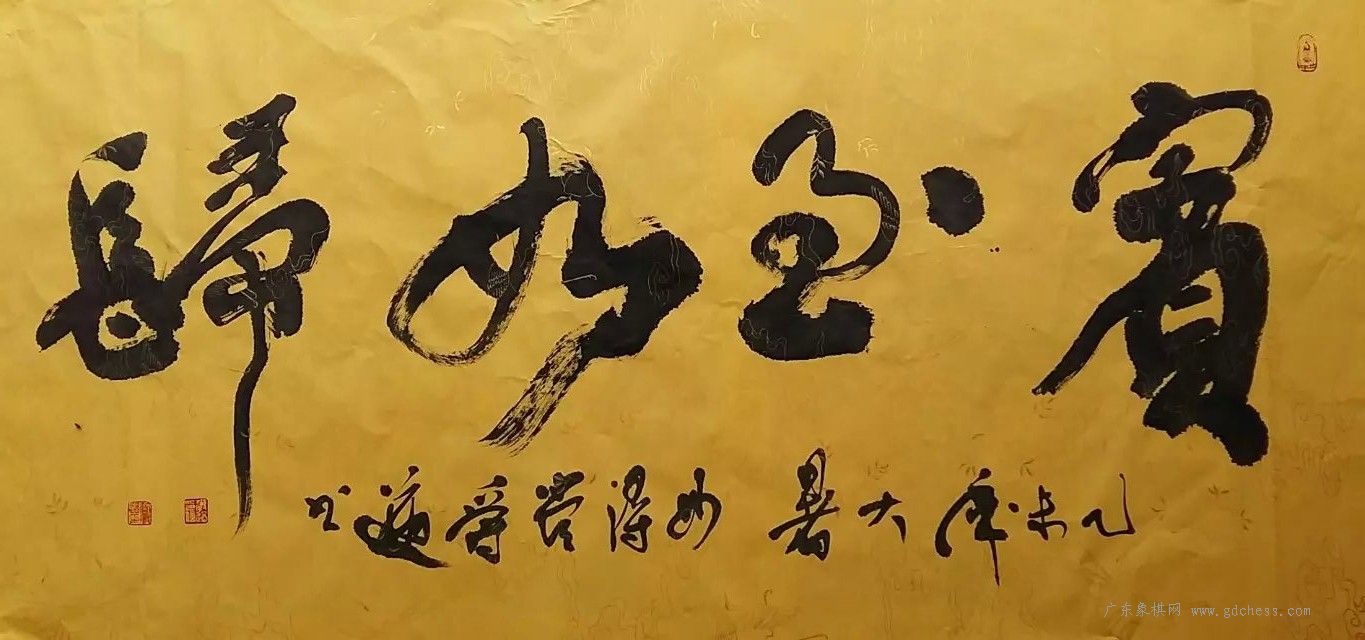 賓至如歸
乙未年大暑 妙得堂爵遜书
广东象棋网 www.gdchess.com